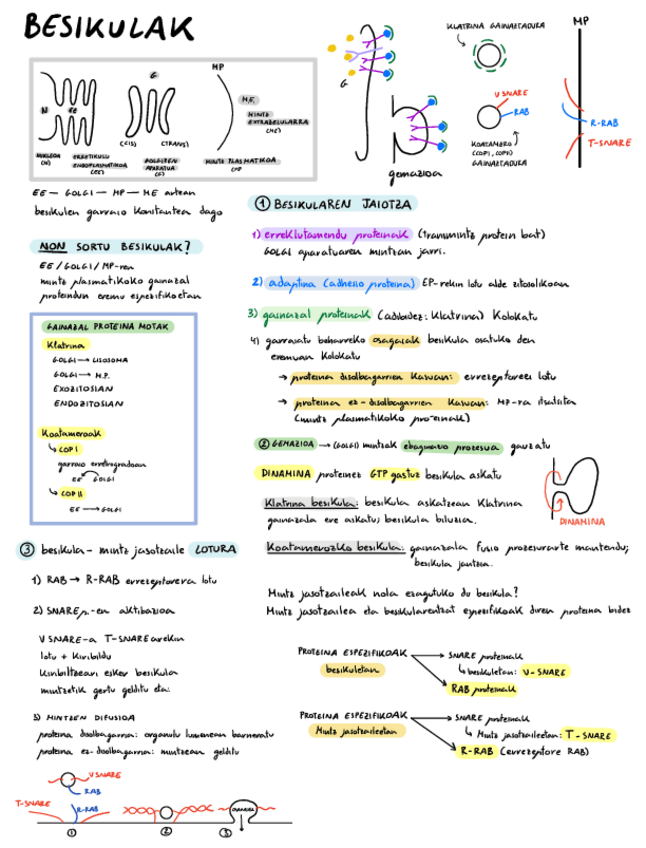 BESIKULAK
N
EE
G
(CIS)
(TRANS)
MP
M.E.
MINTZ
EXTRAZELULARRA
(ME)
NUKLEOA
(N)
ERRETIKULU
ENDOPLASMATIKOA
(EE)
GOLGIREN
APARATUA
(G)
MINTZ PLASMATIKOA
(MP)
G
gemazioa
KLATRINA GAINAZTADURA
V SNARE
RAB
KOATAMERO
(COPI, COPII)
GAINAZTADURA
MP
R-RAB
T-SNARE
EE — GOLGI — MP — ME artean
besikulen garraio konstantea dago
NON SORTU BESIKULAK?
EE / GOLGI / MP-ren
mintz plasmatikoko gainazal
proteindun eremu espezifikoetan
GAINAZAL PROTEINA MOTAK
Klatrina
GOLGI → LISOSOMA
GOLGI → M.P.
EXOZITOSIAN
ENDOZITOSIAN
Koatameroak
↳ COP I
garraio erretrogradoan
EE GOLGI
↳ COP II
EE → GOLGI
① BESIKULAREN JAIOTZA
1) erreklutamendu proteinak (transmintz protein bat)
GOLGI aparatuaren mintzan jarri.
2) adaptina (adhesio proteina) EP-rekin lotu alde zitosolikoan
3) gainazal proteinak (adibidez: Klatrina) Kolokatu
4) garraiatu beharreko osagaiak besikula osatuko den
eremuan Kolokatu
→ proteina disolbagarrien Kasuan: errezeptoreei lotu
→ proteina ez-disolbagarrien Kasuan: MP-ra itsatsita
(mintz plasmatikoko proteinak)
② GEMAZIOA → (GOLGI) mintzak ebaginazio prozesua gauzatu
DINAMINA proteinez GTP gastuz besikula askatu
Klatrina besikula: besikula askatzean Klatrina
gainazala ere askatu; besikula biluzia.
Koatamerozko besikula: gainazala fusio prozesurarte mantendu;
besikula jantzia.
DINAMINA
Mintz jasotzaileak nola ezagutuko du besikula?
Mintz jasotzailea eta besikularentzat espezifikoak diren proteina bidez
PROTEINA ESPEZIFIKOAK
besikuletan
SNARE proteinak
↳ besikuletan: V-SNARE
RAB proteinak
PROTEINA ESPEZIFIKOAK
Mintz jasotzaileetan
SNARE proteinak
↳ Mintz jasotzaileetan: T-SNARE
R-RAB (errezeptore RAB)
③ besikula - mintz jasotzaile LOTURA
1) RAB → R-RAB errezeptorera lotu
2) SNARE p.-en aktibazioa
V SNARE-a T-SNARE arekin
lotu + Kiribildu
Kiribiltzeari esker besikula
mintzetik gertu gelditu eta:
3) MINTZEN DIFUSIOA
proteina disolbagarria: organulu lumenean barneratu
proteina ez-disolbagarria: mintzean gelditu
V SNARE
RAB
T-SNARE
R-RAB
①
②
③